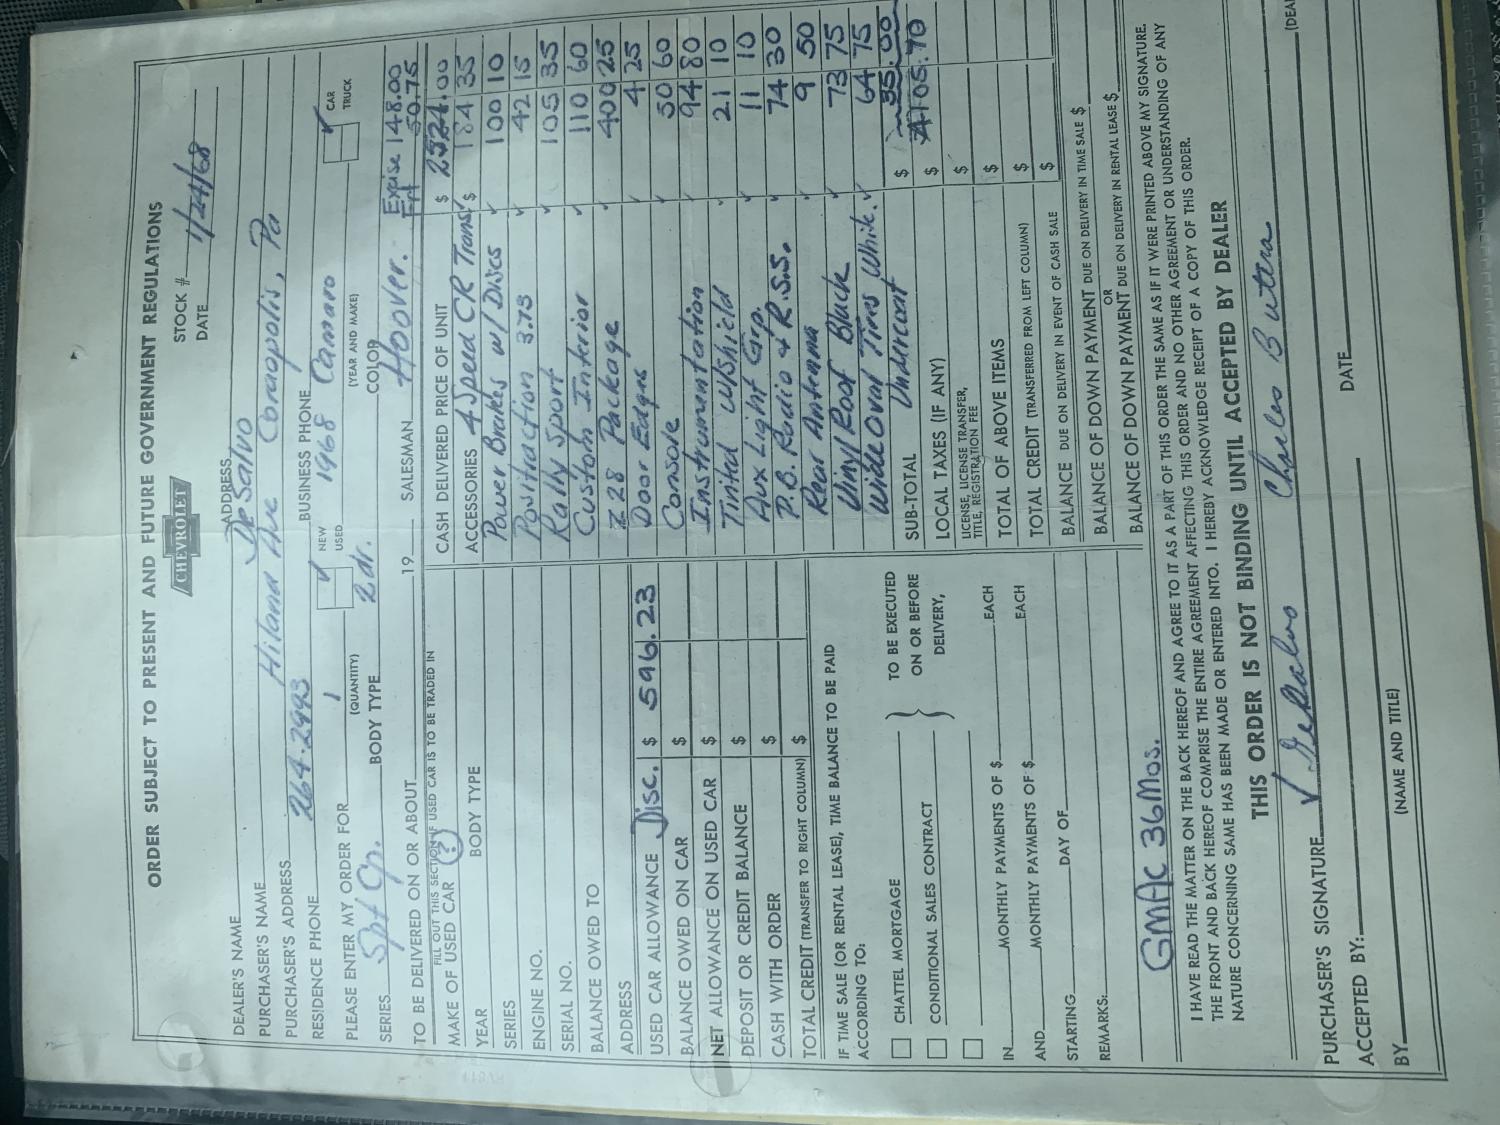 ORDER SUBJECT TO PRESENT AND FUTURE GOVERNMENT REGULATIONS
CHEVROLET
STOCK #
DATE 1/24/68
DEALER'S NAME ADDRESS
PURCHASER'S NAME DeSalvo
PURCHASER'S ADDRESS Hiland Ave Coraopolis, Pa
RESIDENCE PHONE 264-2993 BUSINESS PHONE
PLEASE ENTER MY ORDER FOR 1 (QUANTITY) ✓ NEW USED 1968 Camaro (YEAR AND MAKE) ✓ CAR TRUCK
SERIES Spt Cp. BODY TYPE 2 dr. COLOR
TO BE DELIVERED ON OR ABOUT 19 SALESMAN Hoover.
Excise 148.00
Frt 50.75
FILL OUT THIS SECTION IF USED CAR IS TO BE TRADED IN
MAKE OF USED CAR (?)
YEAR BODY TYPE
SERIES
ENGINE NO.
SERIAL NO.
BALANCE OWED TO
ADDRESS
USED CAR ALLOWANCE Disc. $ 596.23
BALANCE OWED ON CAR $
NET ALLOWANCE ON USED CAR $
DEPOSIT OR CREDIT BALANCE $
CASH WITH ORDER $
TOTAL CREDIT (TRANSFER TO RIGHT COLUMN) $
IF TIME SALE (OR RENTAL LEASE), TIME BALANCE TO BE PAID
ACCORDING TO:
CHATTEL MORTGAGE
CONDITIONAL SALES CONTRACT
TO BE EXECUTED
ON OR BEFORE
DELIVERY,
IN MONTHLY PAYMENTS OF $ EACH
AND MONTHLY PAYMENTS OF $ EACH
STARTING DAY OF
REMARKS:
GMAC 36 Mos.
CASH DELIVERED PRICE OF UNIT $ .00
ACCESSORIES 4 Speed CR Trans ✓ $ 184 35
Power Brakes w/ Discs ✓ 100 10
Positraction 3.73 ✓ 42 15
Rally Sport ✓ 105 35
Custom Interior ✓ 110 60
Z28 Package ✓ 400 25
Door Edges ✓ 4 25
Console ✓ 50 60
Instrumentation ✓ 94 80
Tinted W/Shield ✓ 21 10
Aux Light Grp. ✓ 11 10
P.B. Radio & R.S.S. ✓ 74 30
Rear Antenna ✓ 9 50
Vinyl Roof Black ✓ 73 75
Wide Oval Tires White. ✓ 64 75
Undercoat 35.00
SUB-TOTAL $ 4105.70
LOCAL TAXES (IF ANY) $
LICENSE, LICENSE TRANSFER,
TITLE, REGISTRATION FEE $
TOTAL OF ABOVE ITEMS $
TOTAL CREDIT (TRANSFERRED FROM LEFT COLUMN) $
BALANCE DUE ON DELIVERY IN EVENT OF CASH SALE $
BALANCE OF DOWN PAYMENT DUE ON DELIVERY IN TIME SALE $
OR
BALANCE OF DOWN PAYMENT DUE ON DELIVERY IN RENTAL LEASE $
I HAVE READ THE MATTER ON THE BACK HEREOF AND AGREE TO IT AS A PART OF THIS ORDER THE SAME AS IF IT WERE PRINTED ABOVE MY SIGNATURE.
THE FRONT AND BACK HEREOF COMPRISE THE ENTIRE AGREEMENT AFFECTING THIS ORDER AND NO OTHER AGREEMENT OR UNDERSTANDING OF ANY
NATURE CONCERNING SAME HAS BEEN MADE OR ENTERED INTO. I HEREBY ACKNOWLEDGE RECEIPT OF A COPY OF THIS ORDER.
THIS ORDER IS NOT BINDING UNTIL ACCEPTED BY DEALER
PURCHASER'S SIGNATURE Charles B Butera
ACCEPTED BY: DATE
BY
(NAME AND TITLE)